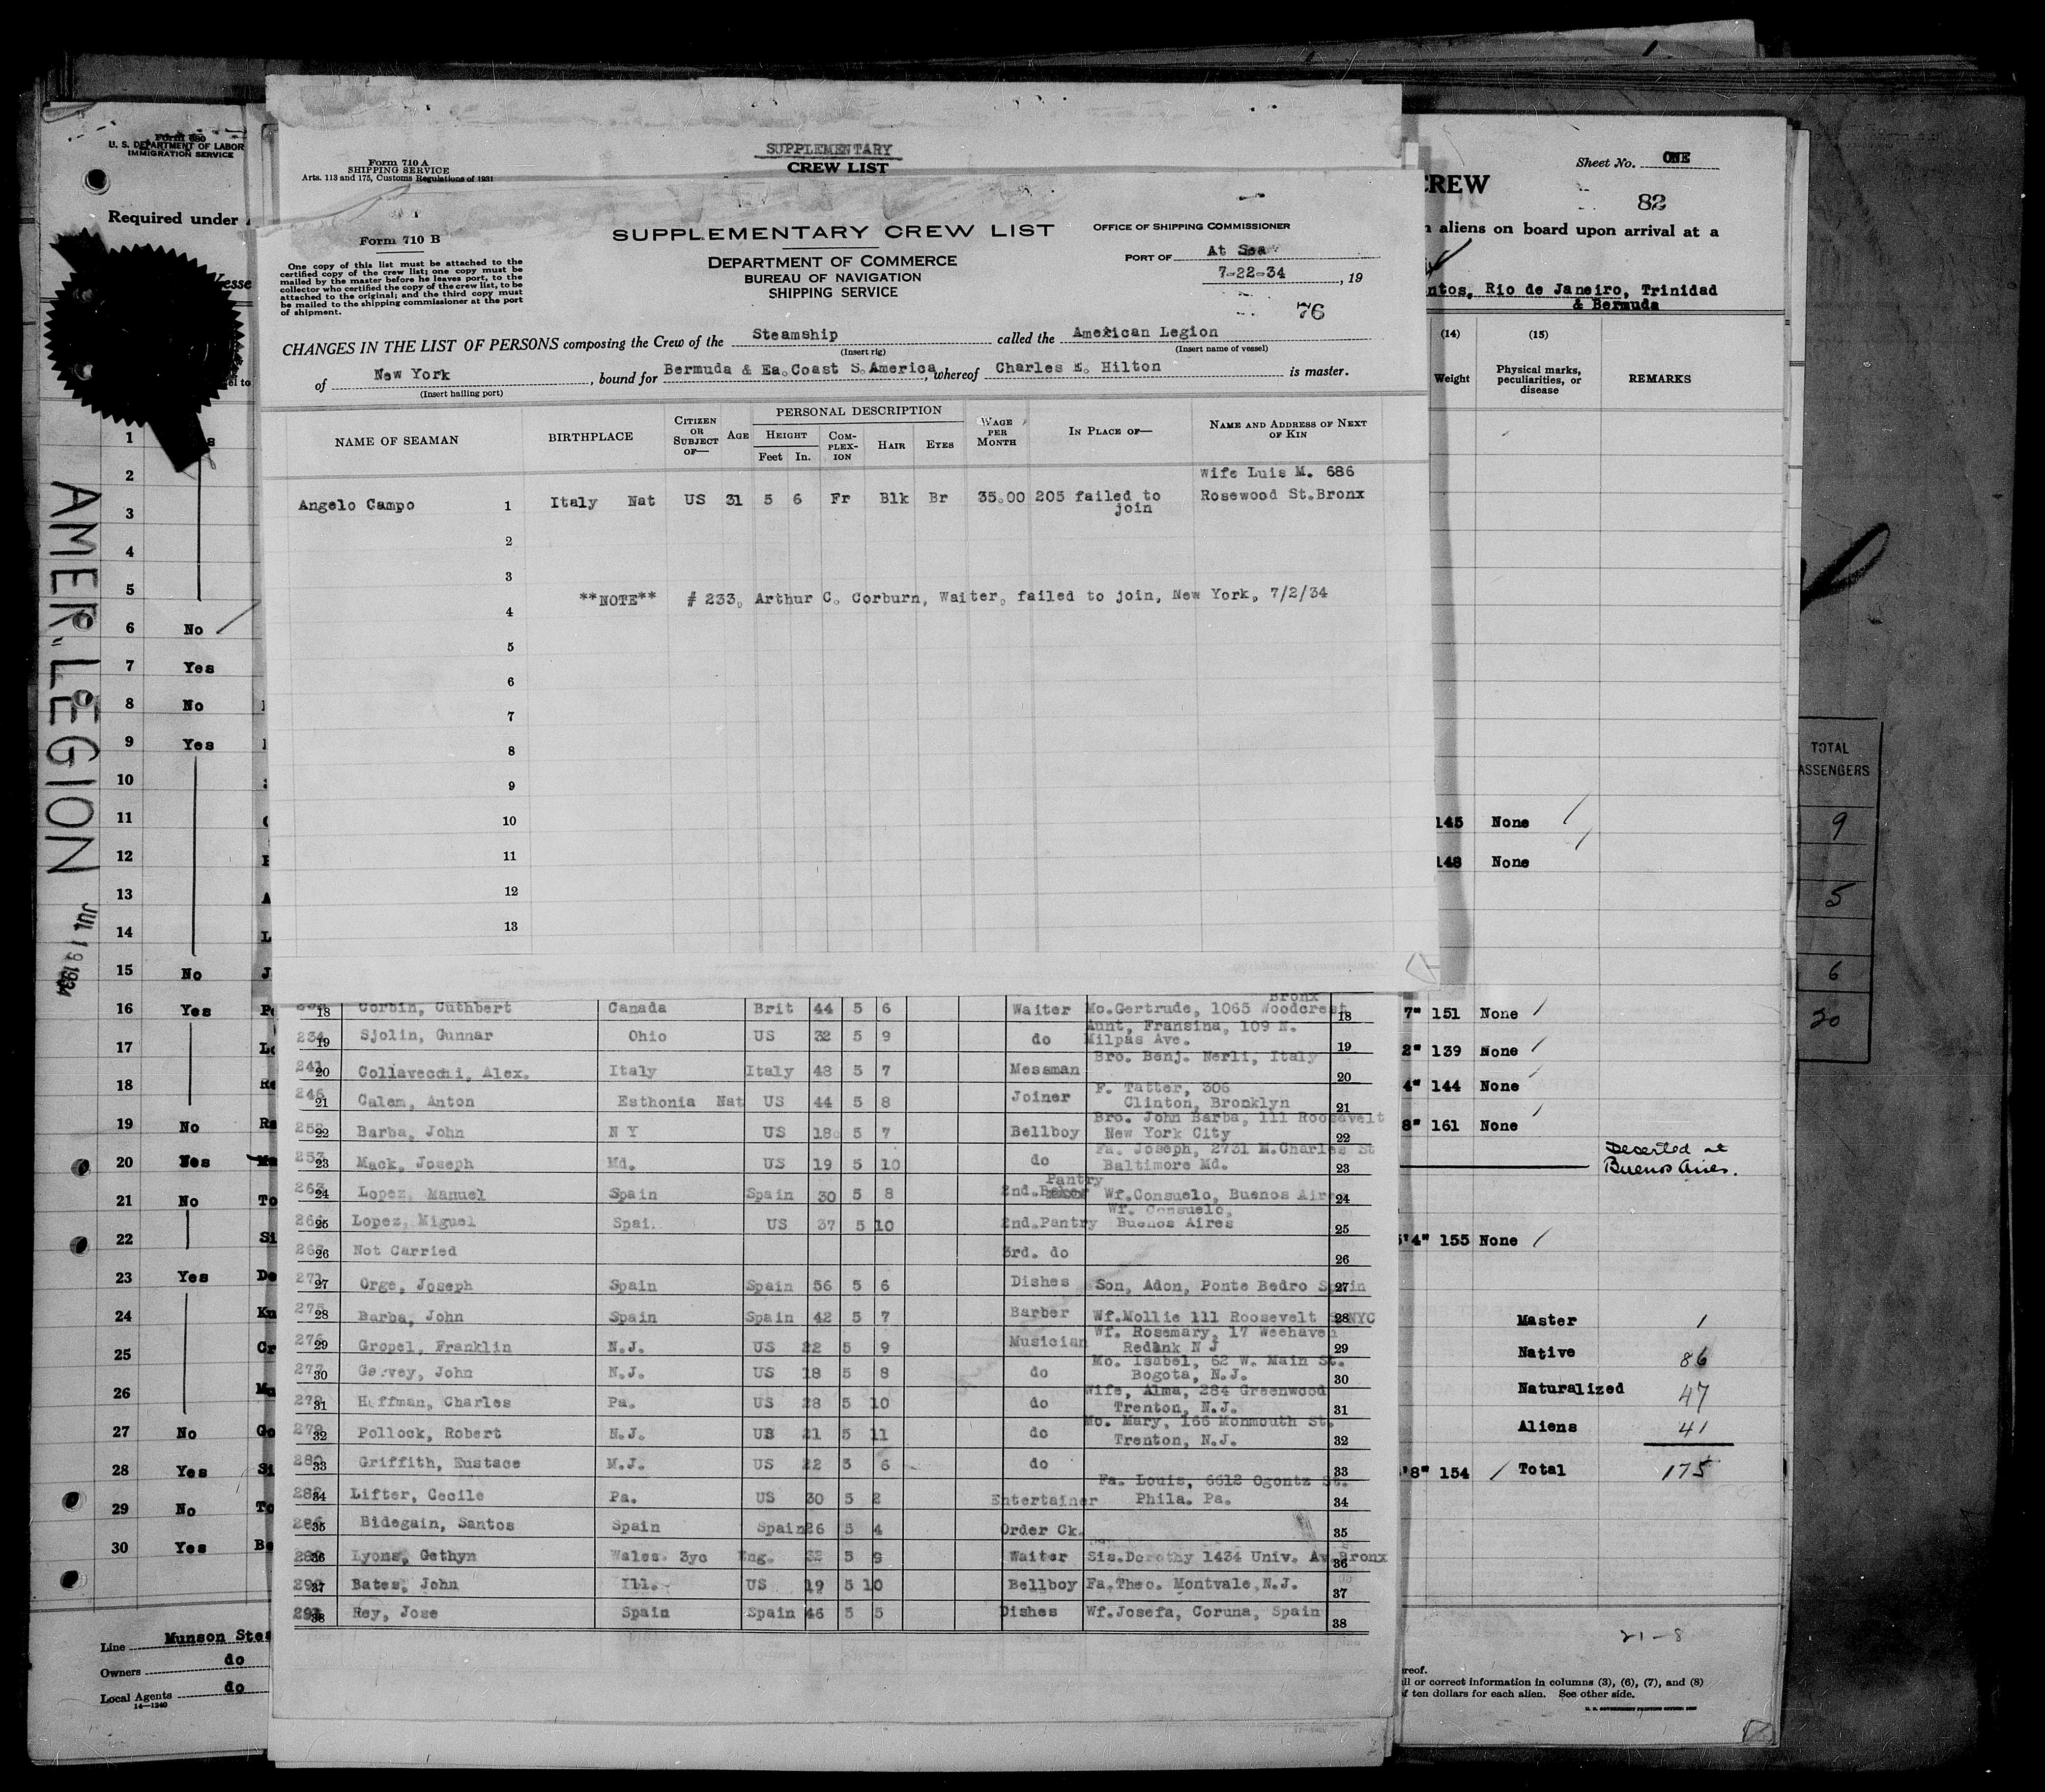 Form 680
U. S. DEPARTMENT OF LABOR
IMMIGRATION SERVICE
Required under
AMER. LEGION
JUL 19 1934
1
2
3
4
5
6 No
7 Yes
8 No
9 Yes
10
11
12
13
14
15 No
16 Yes
17
18
19 No
20 Yes
21 No
22
23 Yes
24
25
26
27 No
28 Yes
29 No
30 Yes
Line Munson Stea
Owners do
Local Agents do
14—1240
Form 710 A
SHIPPING SERVICE
Arts. 113 and 175, Customs Regulations of 1931
SUPPLEMENTARY
CREW LIST
Form 710 B
One copy of this list must be attached to the
certified copy of the crew list; one copy must be
mailed by the master before he leaves port, to the
collector who certified the copy of the crew list, to be
attached to the original; and the third copy must
be mailed to the shipping commissioner at the port
of shipment.
SUPPLEMENTARY CREW LIST
DEPARTMENT OF COMMERCE
BUREAU OF NAVIGATION
SHIPPING SERVICE
OFFICE OF SHIPPING COMMISSIONER
PORT OF At Sea
7-22-34, 19
76
CHANGES IN THE LIST OF PERSONS composing the Crew of the Steamship called the American Legion
(Insert rig) (Insert name of vessel)
of New York, bound for Bermuda & Ea. Coast S. America, whereof Charles E. Hilton is master.
(Insert hailing port)
NAME OF SEAMAN BIRTHPLACE CITIZEN OR SUBJECT OF— AGE PERSONAL DESCRIPTION HEIGHT Feet In. COMPLEXION HAIR EYES WAGE PER MONTH IN PLACE OF— NAME AND ADDRESS OF NEXT OF KIN
Wife Luis M. 686
Angelo Campo 1 Italy Nat US 31 5 6 Fr Blk Br 35.00 205 failed to join Rosewood St. Bronx
2
3
**NOTE** # 233, Arthur C. Corburn, Waiter, failed to join, New York, 7/2/34
4
5
6
7
8
9
10
11
12
13
18 Corbin, Cuthbert Canada Brit 44 5 6 Waiter Mo. Gertrude, 1065 Woodcrest Bronx 18
234 19 Sjolin, Gunnar Ohio US 32 5 9 do Aunt, Fransina, 109 N. Milpas Ave. 19
241 20 Collavecchi, Alex. Italy Italy 48 5 7 Messman Bro. Benj. Nerli, Italy 20
246 21 Calem, Anton Esthonia Nat US 44 5 8 Joiner F. Tatter, 306 Clinton, Brooklyn 21
252 22 Barba, John N Y US 18 5 7 Bellboy Bro. John Barba, 111 Roosevelt New York City 22
253 23 Mack, Joseph Md. US 19 5 10 do Fa. Joseph, 2731 M. Charles St Baltimore Md. 23
263 24 Lopez, Manuel Spain Spain 30 5 8 2nd. Pantry Wf. Consuelo, Buenos Aires 24
25 Lopez, Miguel Spai. US 37 5 10 2nd. Pantry Wf. Consuelo, Buenos Aires 25
26 Not Carried 3rd. do 26
271 27 Orge, Joseph Spain Spain 56 5 6 Dishes Son, Adon, Ponte Bedro Spain 27
275 28 Barba, John Spain Spain 42 5 7 Barber Wf. Mollie 111 Roosevelt S NYC 28
276 29 Gropel, Franklin N.J. US 22 5 9 Musician Wf. Rosemary, 17 Weehaven Redbnk N J 29
277 30 Garvey, John N.J. US 18 5 8 do Mo. Isabel, 62 W. Main St. Bogota, N.J. 30
278 31 Hoffman, Charles Pa. US 28 5 10 do Wife, Alma, 284 Greenwood Trenton, N.J. 31
279 32 Pollock, Robert N.J. US 21 5 11 do Mo. Mary, 166 Monmouth St. Trenton, N.J. 32
280 33 Griffith, Eustace M.J. US 22 5 6 do 33
282 34 Lifter, Cecile Pa. US 30 5 2 Entertainer Fa. Louis, 6612 Ogontz St. Phila. Pa. 34
286 35 Bidegain, Santos Spain Spain 26 5 4 Order Ck. 35
36 Lyons, Gethyn Wales 3yc Eng. 32 5 9 Waiter Sis. Dorothy 1434 Univ. Av Bronx 36
290 37 Bates, John Ill. US 19 5 10 Bellboy Fa. Theo. Montvale, N.J. 37
291 38 Rey, Jose Spain Spain 46 5 5 Dishes Wf. Josefa, Coruna, Spain 38
Sheet No. ONE
CREW
82
aliens on board upon arrival at a
ntos, Rio de Janeiro, Trinidad
& Bermuda
(14) (15)
Weight Physical marks, peculiarities, or disease REMARKS
145 None
148 None
7" 151 None
2" 139 None
4" 144 None
8" 161 None
Deserted at
Buenos Aires.
5'4" 155 None
Master 1
Native 86
Naturalized 47
Aliens 41
'8" 154 Total 175
21-8
ereof.
ll or correct information in columns (3), (6), (7), and (8)
f ten dollars for each alien. See other side.
U. S. GOVERNMENT PRINTING OFFICE
TOTAL
PASSENGERS
9
5
6
20